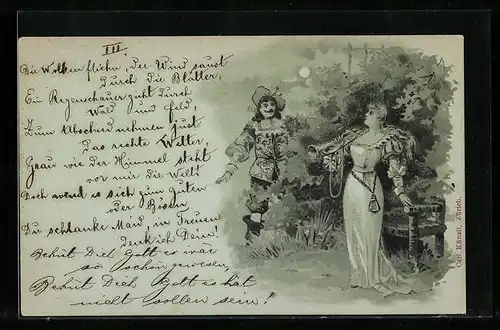 III
Die Wolken fliehn, der Wind saust
durch die Blätter,
Ein Regenschauer zieht durch
Wald und Feld,
Zum Abschiednehmen just
das rechte Wetter,
Grau wie der Himmel steht
vor mir die Welt!
Doch wend es sich zum Guten
oder Bösen
Du schlanke Maid, in Treuen
denk ich Dein!
Behüt Dich Gott es wär
so schön gewesen,
Behüt Dich Gott es hat
nicht sollen sein!
Carl Künzli, Zürich.